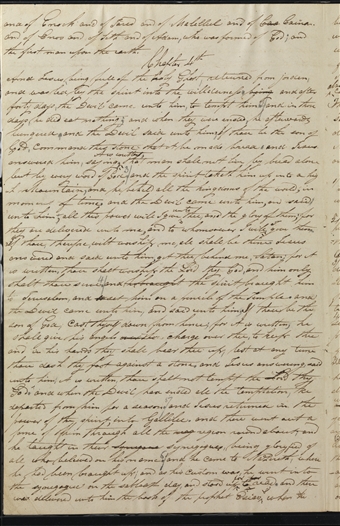 and of Enoch and of Jared and of Maleleel and of Cainan
and of Enos and of Seth and of Adam, who was formed of God; and
the first man upon the earth
Chapter 4th
And Jesus being full of the Holy Ghost returned from Jordan,
and was led by the spirit into the wilderness, and after
forty days the Devil came unto him, to tempt him, and in those
days he did eat nothing; and when they were ended, he afterwards
hungered; and the Devil said unto him, if thou be the son of
God, command this stone that it be made bread, and Jesus
answered him, saying, it is written that man shall not live by bread alone
but by every word of God, and the spirit taketh him up into a high
Mountain, and he beheld all the kingdoms of the world, in
a moment of time, and the Devil came unto him, and said
unto him, all this power will I give thee, and the glory of them; for
they are delivered unto me, and to whomsoever I will, I give them
If thou therefore will worship me, all shall be thine, Jesus
answered and said unto him, get thee behind me, Satan; for it
is written, thou shalt worship the Lord thy God, and him only
shalt thou serve, and the spirit brought him
to Jerusalem, and set him on a pinnacle of the Temple, and
the Devil came unto him, and said unto him, if thou be the
son of God, cast thyself down from hence; for it is written, he
shall give his angels charge over thee, to keep thee
and in his hands they shall bear thee up, lest at any time
thou dash thy foot against a stone, and Jesus answering, said
unto him, it is written, thou shalt not tempt the Lord thy
God, and when the Devil had ended all the temptation, he
departed from him for a season, and Jesus returned in the
power of the spirit into Gallilee, and there went out a
fame of him through all the region round about; and
he taught in their synagogues, being glorified of
all who believed on his name, and he came to Nazareth, where
he had been brought up, and as his custom was, he went into
the synagogue on the sabbath day and stood up to read, and there
was delivered unto him the book of the prophet Esias, when he